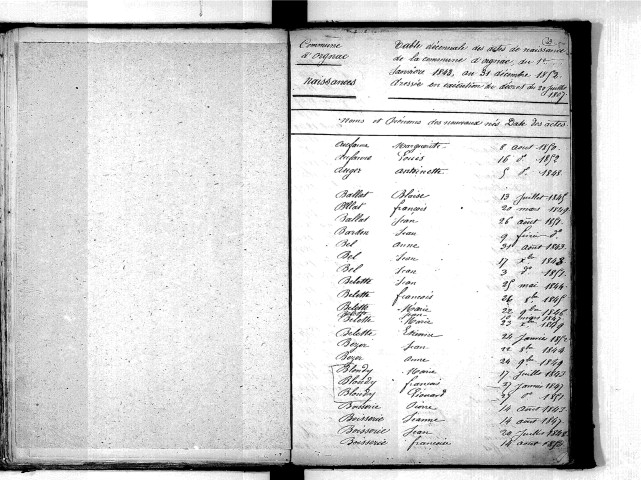 Commune d'Orgnac
Naissances
Table décennale des actes de naissance
de la commune d'orgnac du 1er
Janvier 1843, au 31 décembre 1852.
dressée en exécution du décret du 20 Juillet
1807
Noms et Prénoms des nouveaux nés Date des actes
Marguerite 8 aout 1850
Louis 16 do 1852
Auger antoinette 5 do 1848
Ballot Blaise 13 Juillet 1845
françois 20 mars 1849
Ballot Jean 26 août 1851
Bardon Jean 9 février do
Bel anne 31 août 1843
Bel Jean 17 xbre 1848
Bel Jean 3 do 1851
Belotte Jean 25 mai 1844
Belotte françois 26 8bre 1845
Belotte Marie 22 9bre 1846
Belotte Marie 23 8bre 1849
Belotte Etienne 24 Janvier 1852
Bozer Jean 22 8bre 1844
Bozer Anne 24 9bre 1849
Blondy Marie 17 Juillet 1843
Blondy françois 27 Janvier 1847
Blondy Léonard 27 do 1851
Boisserie Pierre 14 août 1843
Boisserie Jeanne 14 août 1847
Boisserie Jean 29 Juillet 1848
Boisserie françoise 14 août